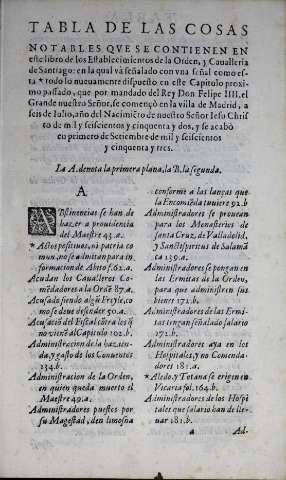 TABLA DE LAS COSAS
NOTABLES QVE SE CONTIENEN EN
este libro de los Establecimientos de la Orden, y Caualleria
de Santiago: en la qual và señalado con vna señal como es-
ta * todo lo nueuamente dispuesto en este Capitulo proxi-
mo passado, que por mandado del Rey Don Felipe IIII. el
Grande nuestro Señor, se començò en la villa de Madrid, a
seis de Iulio, año del Nacimiẽto de nuestro Señor Iesu Chris-
to de mil y seiscientos cinquenta y dos, y se acabò
en primero de Setiembre de mil y seiscientos
y cinquenta y tres.
La A. denota la primera plana, la B. la segunda.
A
ABstinencias se han de
hazer a prouidencia
del Maestre 45.a.
* Actos positiuos, ni patria co-
mun, no se admitan para in-
formacion de Abito f.62.a.
Acudan los Caualleros Co-
mẽdadores a la Ordẽ 87.a.
Acusado siendo algũ Freyle, co-
mo se deue defender 50.a.
Acusaciõ del Fiscal cõtra los q̃
no viniẽ al Capitulo 102.b.
Administracion de la hazien-
da, y gasto de los Conuentos
134.b.
Administracion de la Orden,
en quien queda muerto el
Maestre 49.a.
Administradores puestos por
su Magestad, den limosna
conforme a las lanças que
la Encomiẽda tuuiere 92.b
Administradores se prouean
para los Monasterios de
Santa Cruz, de Valladolid,
y Sanctispiritus de Salamã
ca 139.a.
Administradores se pongan en
las Ermitas de la Orden,
para que administren sus
bienes 171.b.
Administradores de las Ermi-
tas tengan señalado salario
172.b.
Administradores aya en los
Hospitales, y no Comenda-
dores 181.a.
* Aledo, y Totana se erigen en
Vicaria fol.164.b.
Administradores de los Hospi
tales que salario han de lle-
uar 181.b.
a
Ad-